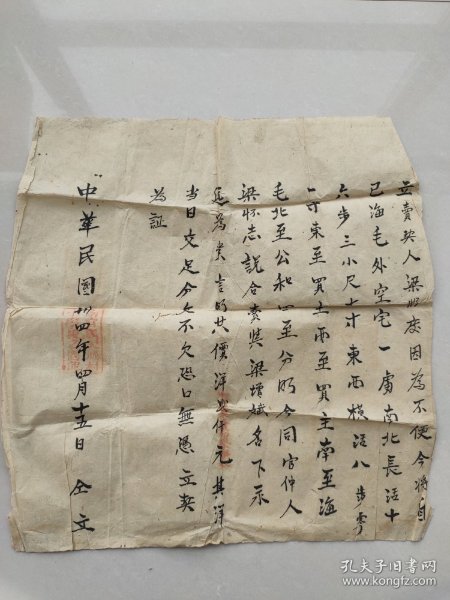 立賣契人梁 度因為不便今將自
己海毛外空宅一處南北長活十
六步三小尺七寸東西橫活八步零
一寸東至買主西至買主南至海
毛北至公和四至分明今同官中人
梁 志說合賣與梁增 名下永
遠為業言明共價洋 仟元其洋
當日交足分文不欠恐口無憑立契
為証
中華民國卅四年四月十五日 仝文
孔夫子旧书网
www.kongfz.com